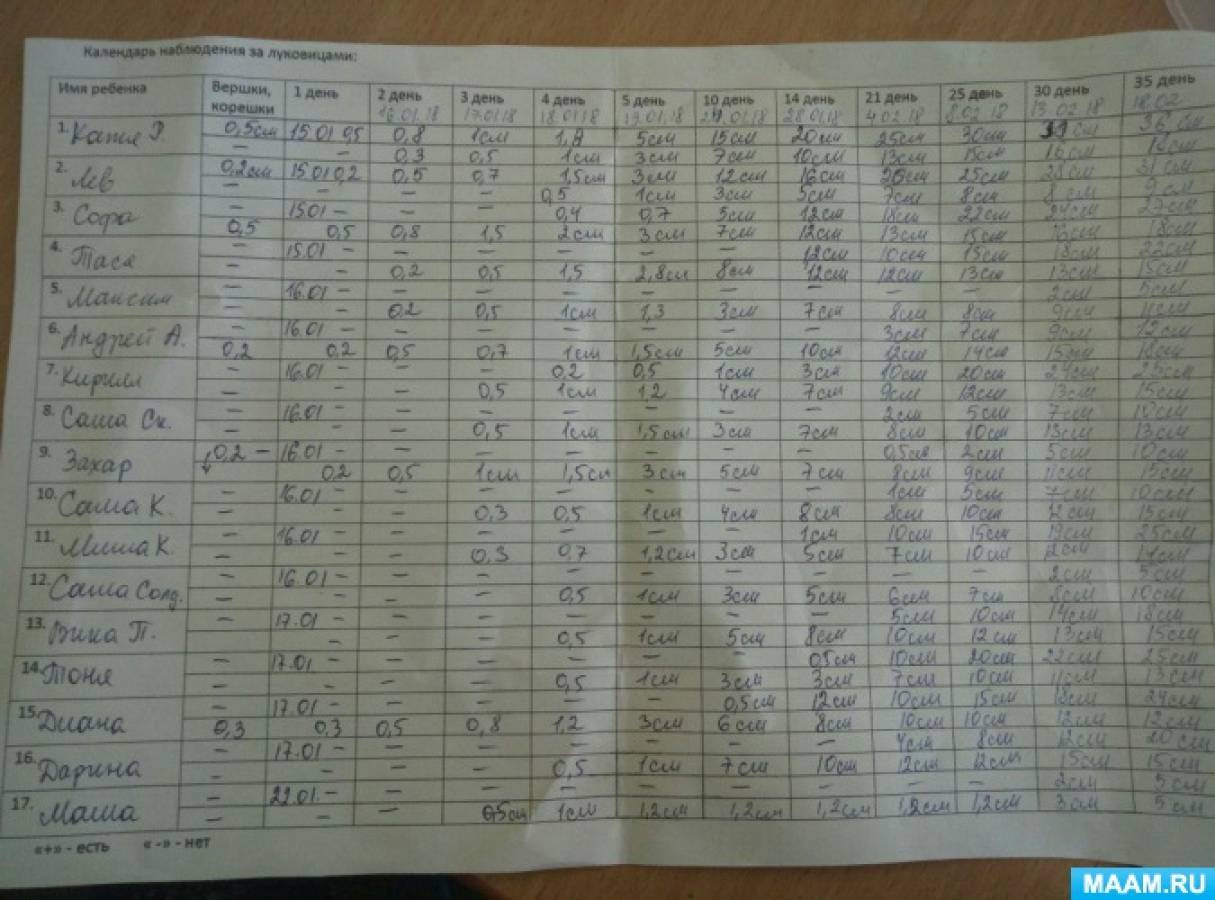 Календарь наблюдения за луковицами:
Имя ребенка Вершки, корешки 1 день 2 день 3 день 4 день 5 день 10 день 14 день 21 день 25 день 30 день 35 день
16.01.18 17.01.18 18.01.18 19.01.18 24.01.18 28.01.18 4.02.18 8.02.18 13.02.18 18.02
1. Катя Р. 0,5см 15.01 0,5 0,8 1см 1,8 5см 15см 20см 25см 30см 36см
— — 0,3 0,5 1см 3см 7см 10см 13см 15см 16см 18см
2. Лев 0,2см 15.01 0,2 0,5 0,7 1,5см 3см 12см 16см 25см 28см 31см
— — — — 0,5 1см 3см 5см 7см 8см 8см 9см
3. Софа — 15.01 — — — 0,4 0,7 5см 12см 18см 22см 24см 27см
0,5 0,5 0,8 1,5 2см 3см 7см 12см 13см 15см 16см 18см
4. Тася — 15.01 — — — — — — 12см 10см 15см 18см 22см
— — 0,2 0,5 1,5 2,8см 8см 12см 12см 13см 13см 15см
5. Максим — 16.01 — — — — — — — — — 2см 5см
— — 0,2 0,5 1см 1,3 3см 7см 8см 8см 9см 11см
6. Андрей А. — 16.01 — — — — — — — 3см 7см 9см 12см
0,2 0,2 0,5 0,7 1см 1,5см 5см 10см 12см 14см 15см 18см
7. Кирилл — 16.01 — — — 0,2 0,5 1см 3см 10см 20см 24см 25см
— — — 0,5 1см 1,2 4см 7см 9см 12см 13см 15см
8. Саша Ск. — 16.01 — — — — — — — 2см 5см 7см 10см
— — — 0,5 1см 1,5см 3см 7см 8см 10см 13см 13см
9. Захар 0,2 — 16.01 — — — — — — — 0,5см 2см 5см 10см
0,2 0,5 1см 1,5см 3см 5см 7см 8см 9см 11см 15см
10. Саша К. — 16.01 — — — — — — — 1см 5см 7см 10см
— — — 0,3 0,5 1см 4см 8см 8см 10см 12см 15см
11. Миша К. — 16.01 — — — — — — 1см 10см 15см 19см 25см
— — — 0,3 0,7 1,2см 3см 5см 7см 10см 14см
12. Саша Солд. — 16.01 — — — — — — — — — 2см 5см
— — — — 0,5 1см 3см 5см 6см 7см 8см 10см
13. Вика П. — 17.01 — — — — — — — 5см 10см 14см 18см
— — — — 0,5 1см 5см 8см 10см 12см 13см 15см
14. Тоня — 17.01 — — — — — — 0,5см 10см 20см 22см 25см
— — — — 0,5 1см 3см 3см 7см 10см 11см 13см
15. Диана — 17.01 — — — — — 0,5см 12см 10см 15см 18см 24см
0,3 0,3 0,5 0,8 1,2 3см 6см 8см 10см 10см 12см 12см
16. Дарина — 17.01 — — — — — — — 4см 8см 12см 20см
— — — — 0,5 1см 7см 10см 12см 12см 15см 15см
17. Маша — 22.01. — — — — — — — — — 2см 5см
— — — 0,5см 1см 1,2см 1,2см 1,2см 1,2см 1,2см 3см 5см
«+» - есть « -» - нет
MAAM.RU